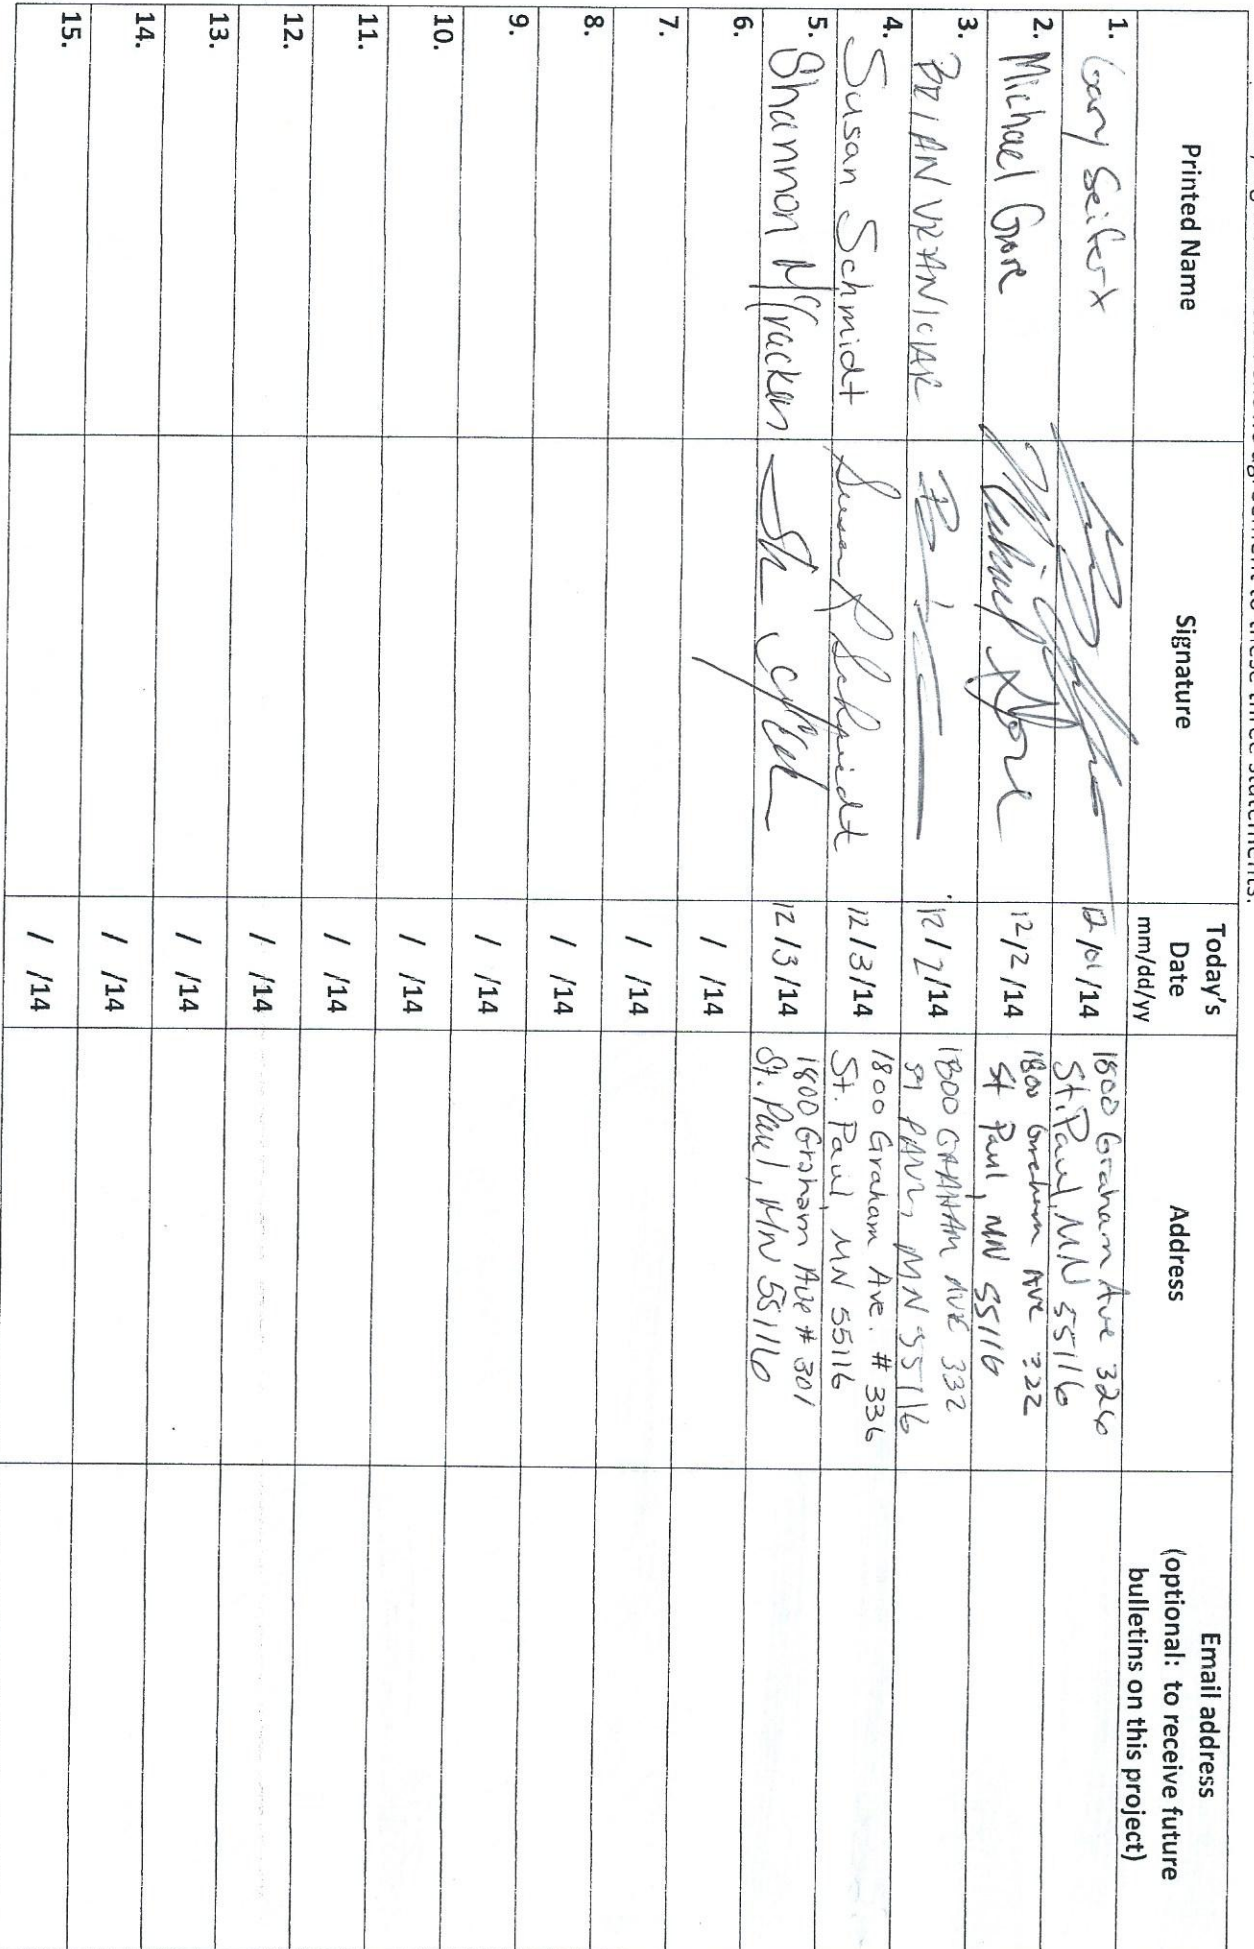 agreement to these three statements.
Printed Name
Signature
Today's
Date
mm/dd/yy
Address
Email address
(optional: to receive future
bulletins on this project)
1. Gary Seifert
12/01/14
1800 Graham Ave 326
St. Paul, MN 55116
2. Michael Gore
Michael Gore
12/2/14
1800 Graham Ave 322
St Paul, MN 55116
3. BRIAN VRANICIAR
12/2/14
1800 GRAHAM AVE 332
ST PAUL, MN 55116
4. Susan Schmidt
Susan R Schmidt
12/3/14
1800 Graham Ave. # 336
St. Paul, MN 55116
5. Shannon McCracken
12/3/14
1800 Graham Ave # 301
St. Paul, MN 55116
6. / /14
7. / /14
8. / /14
9. / /14
10. / /14
11. / /14
12. / /14
13. / /14
14. / /14
15. / /14